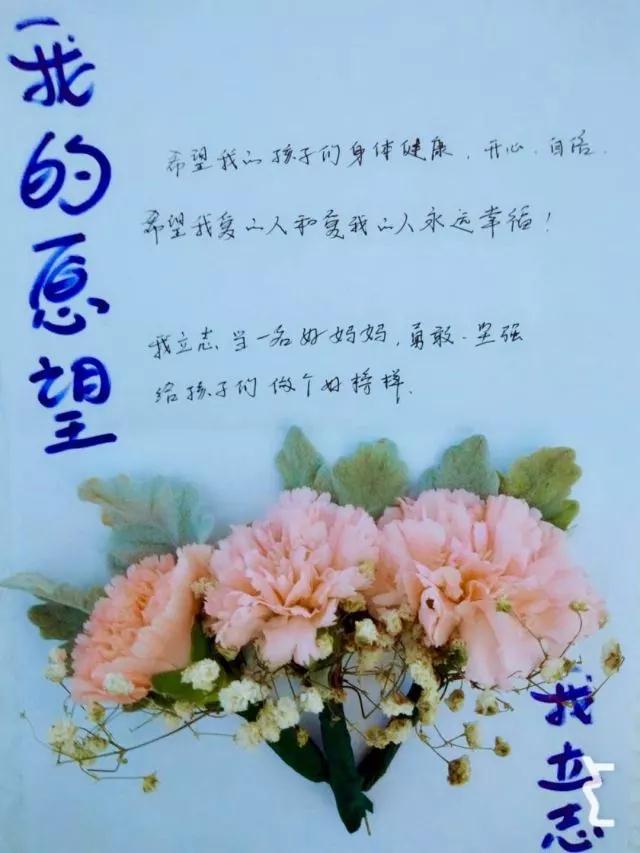 我的愿望
希望我的孩子们身体健康，开心、自信.
希望我爱的人和爱我的人永远幸福！
我立志当一名好妈妈，勇敢、坚强
给孩子们做个好榜样.
我立志